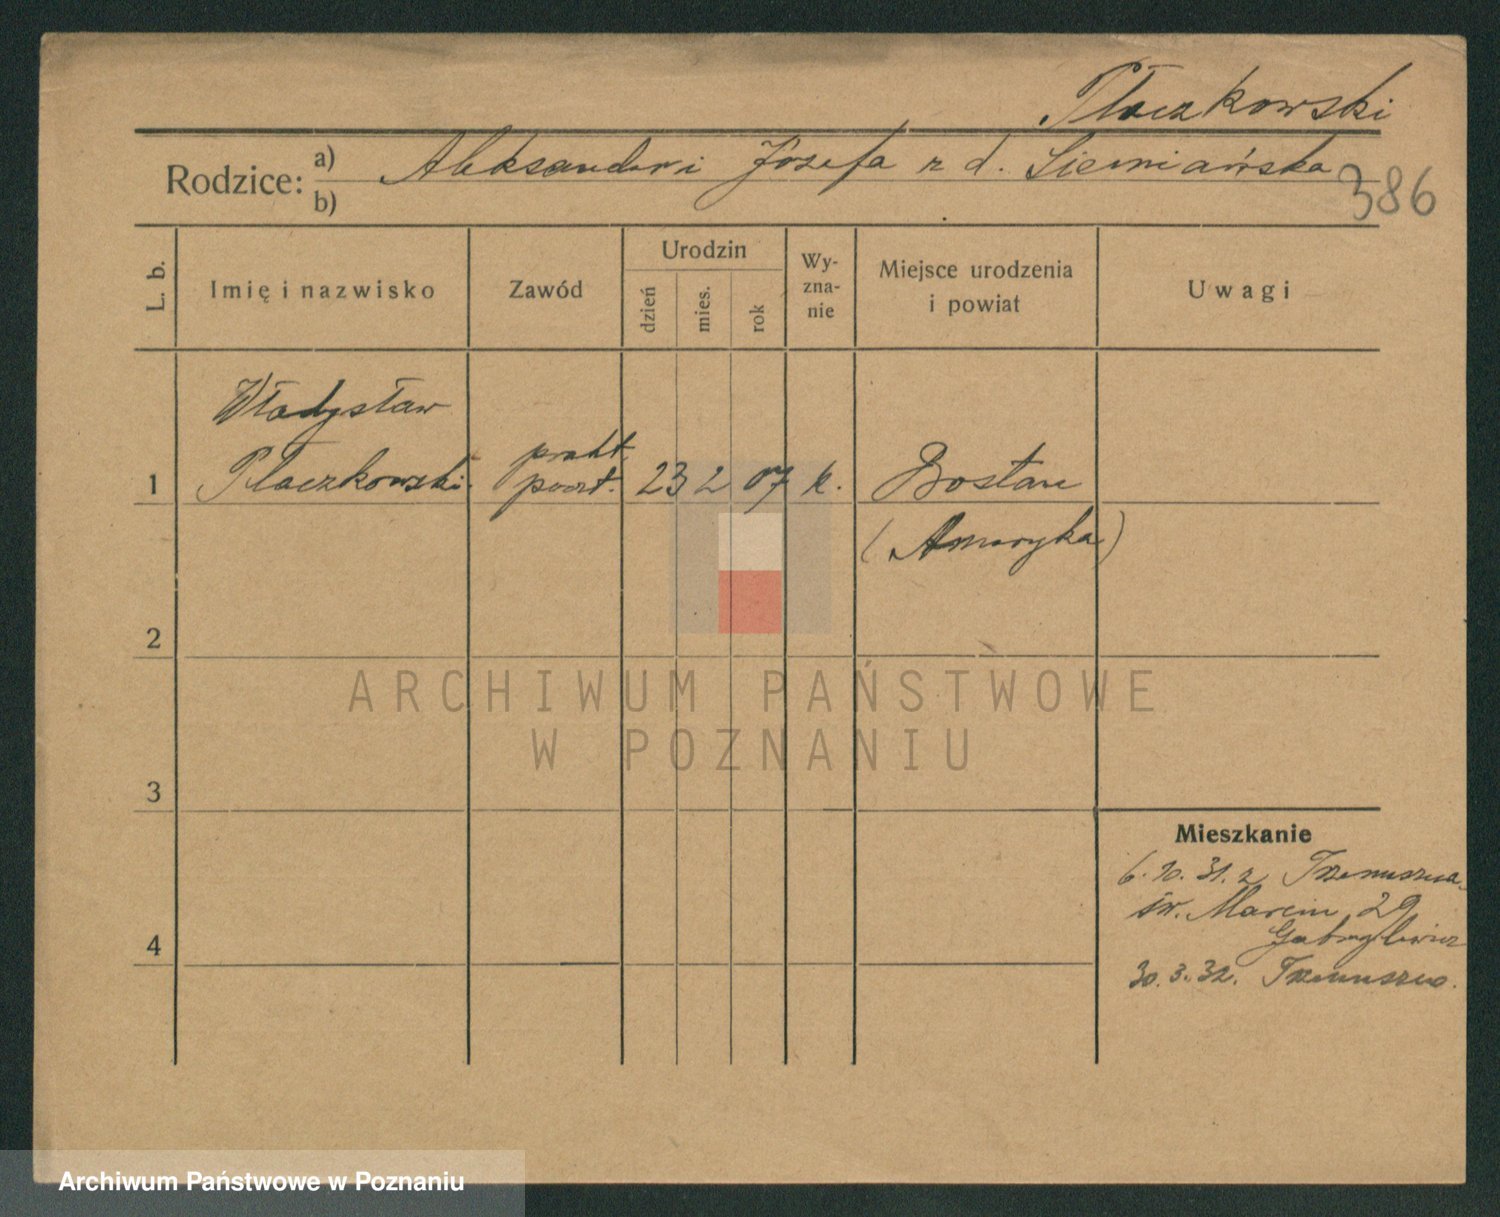 Płaczkowski
Rodzice: a) Aleksander i Józefa z d. Siemiańska
b)
386
L. b.
Imię i nazwisko
Zawód
Urodzin
dzień
mies.
rok
Wy-
zna-
nie
Miejsce urodzenia
i powiat
Uwagi
Władysław
1 Płaczkowski prakt.
poczt. 23 2 07 k. Bostan
(Ameryka)
2
ARCHIWUM PAŃSTWOWE
W POZNANIU
3
Mieszkanie
6.10.31. z
św. Marcin 29
4
30.3.32.
Archiwum Państwowe w Poznaniu